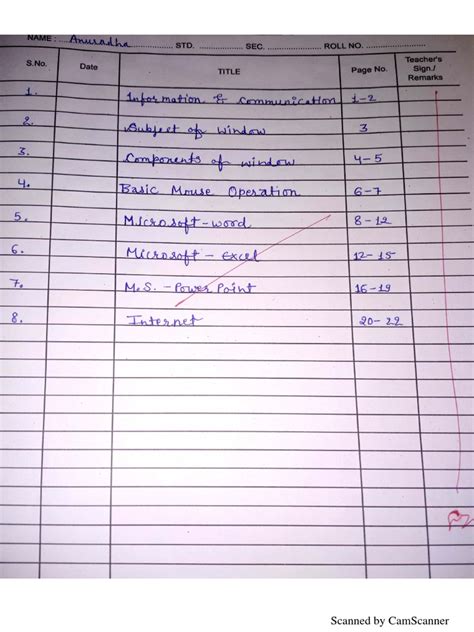 NAME : Anuradha STD. SEC. ROLL NO.
S.No. Date TITLE Page No. Teacher's Sign./ Remarks
1. Information & communication 1-2
2. Subject of window 3
3. Components of window 4-5
4. Basic Mouse Operation 6-7
5. Microsoft-word 8-12
6. Microsoft - Excel 12-15
7. M.S. - Power Point 16-19
8. Internet 20-22
Scanned by CamScanner